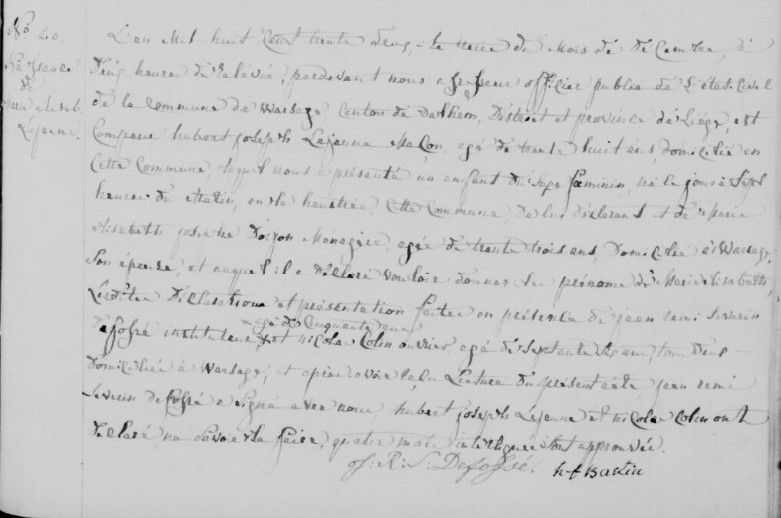 No 20.
Naissance
de
Marie elisab.
Lejeune.
L'an Mil huit Cent trente deux, le treize du Mois de décembre, à
deux heures de relevée, pardevant nous officier public de l'état Civil
de la Commune de Warsage, Canton de Dalhem, District et province de Liège, est
Comparu hubert joseph Lejeune Maçon, agé de trente huit ans, domicilié en
Cette Commune, lequel nous à présenté un enfant du Sexe féminin, né le jour à Sept
heures du Matin, en Cette Commune, de lui déclarant et de Marie
elisabeth josephe Ménagère, agée de trente trois ans, Domiciliée à Warsage,
Son épouse, et auquel il a déclaré vouloir donner les prénoms de Marie elisabeth,
Lesdites Déclaration et présentation faites en présence de jean remi Servais
agé de Cinquante deux
defossé instituteur, et nicolas Colin ouvrier, agé de Septante ans, tous deux
domiciliés à Warsage, et après avoir Lecture du présent acte, jean remi
Servais defossé a Signé avec nous, hubert joseph Lejeune et nicolas Colin ont
déclaré ne Savoir le faire, quatre mots interlignés sont approuvés.
J. R. S. Defossé. h f Bastin